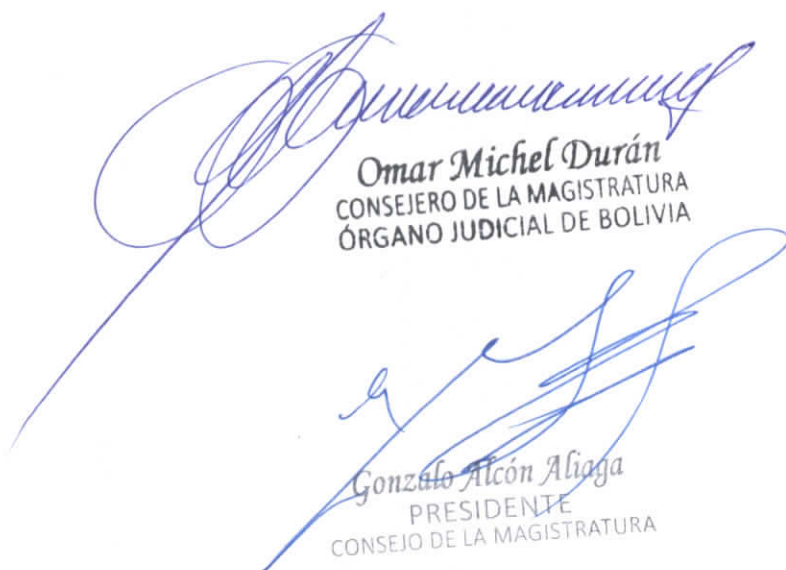 Omar Michel Durán
CONSEJERO DE LA MAGISTRATURA
ÓRGANO JUDICIAL DE BOLIVIA
Gonzalo Alcón Aliaga
PRESIDENTE
CONSEJO DE LA MAGISTRATURA